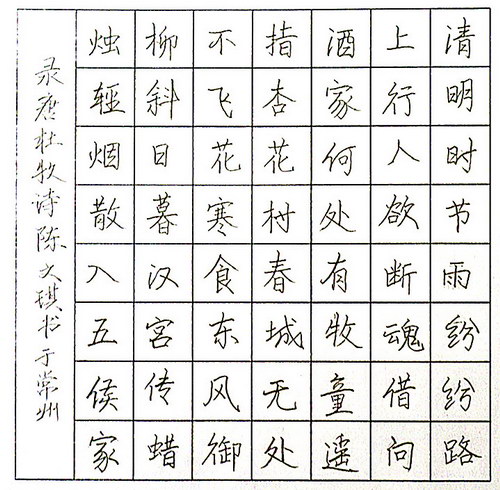 清明时节雨纷纷路
上行人欲断魂借问
酒家何处有牧童遥
指杏花村春城无处
不飞花寒食东风御
柳斜日暮汉宫传蜡
烛轻烟散入五侯家
录唐杜牧诗陈文琪书于常州